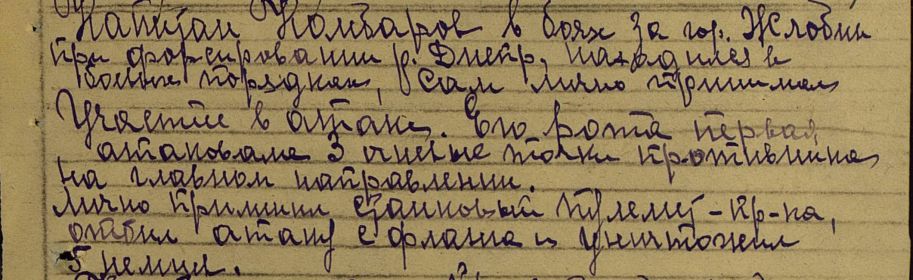 Капитан Комбаров в боях за гор. Жлобин
при форсировании р. Днепр, находился в
боевых порядках, сам лично принимал
участие в атаке. Его рота первая
атаковала 3 огневые точки противника
на главном направлении.
Лично применил станковый пулемет пр-ка,
отбил атаку с фланга и уничтожил
5 немцев.